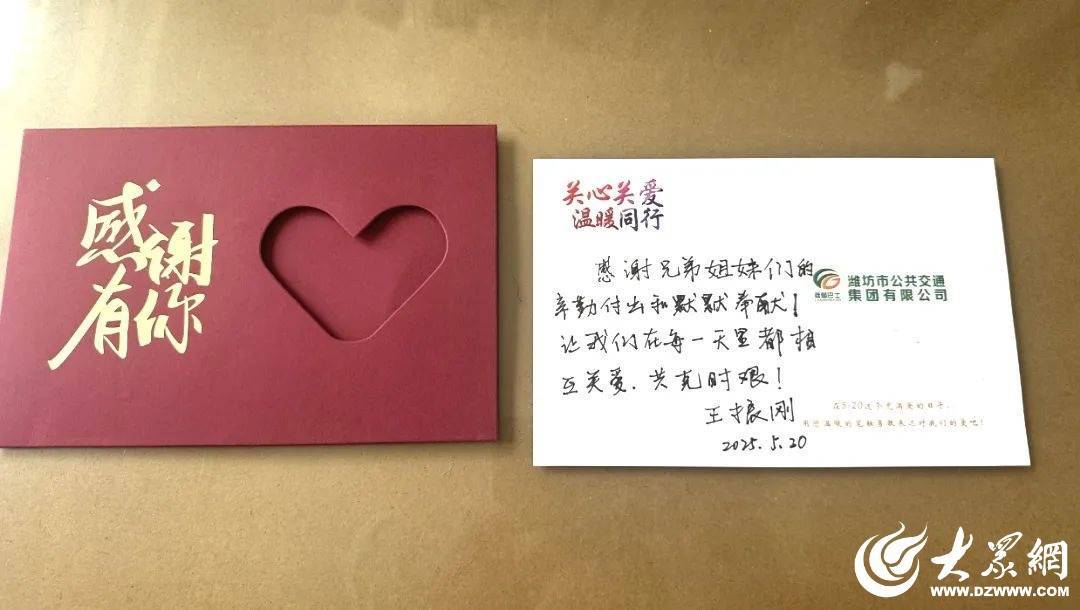 感谢
有你
关心关爱
温暖同行
感谢兄弟姐妹们的
辛勤付出和默默奉献！
让我们在每一天里都相
互关爱，共克时艰！
王振刚
2025.5.20
鸢都巴士
潍坊市公共交通
集团有限公司
在5.20这个充满爱的日子，
用您温暖的笔触勇敢表达对我们的爱吧！
大众網
WWW.DZWWW.COM